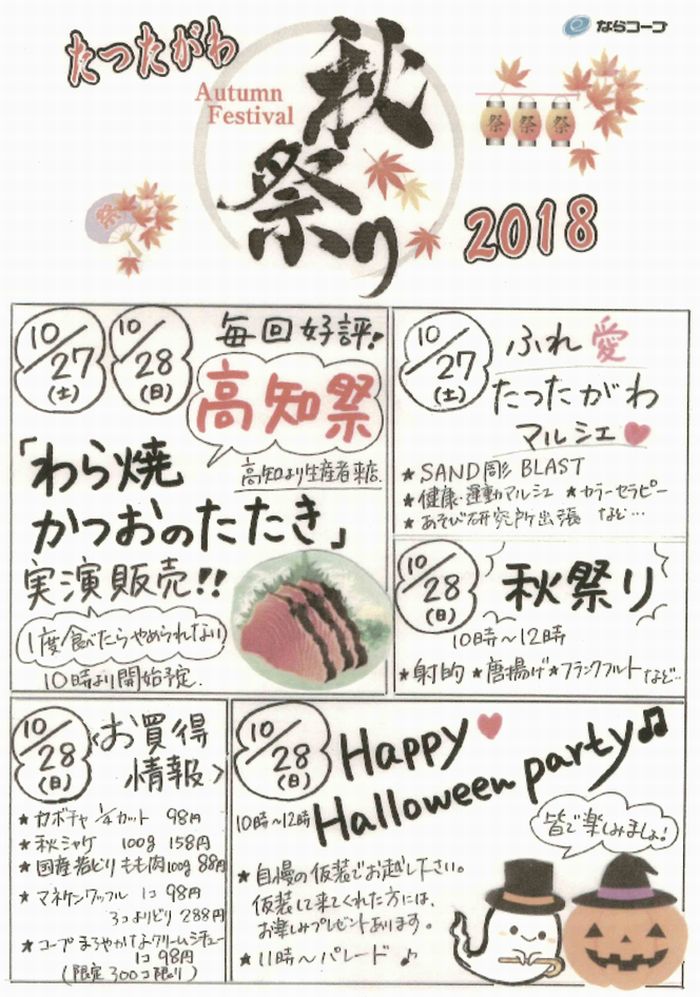 ならコープ
たつたがわ
秋祭り
Autumn
Festival
祭
祭 祭 祭
2018
10/27(土)
10/28(日)
毎回好評!
高知祭
高知より生産者来店.
「わら焼
かつおのたたき」
実演販売!!
1度食べたらやめられない
10時より開始予定.
10/27(土)
ふれ愛
たったがわ
マルシェ
★SAND彫 BLAST
★健康・運動マルシェ ★カラーセラピー
★あそび研究所出張 など…
10/28(日)
秋祭り
10時～12時
★射的 ★唐揚げ ★フランクフルト など…
10/28(日)
お買得
情報
★カボチャ 1/4カット 98円
★秋シャケ 100g 158円
★国産若どりもも肉100g 88円
★マネケンワッフル 1コ 98円
3コよりどり 288円
★コープ まろやかなクリームシチュー
1コ 98円
(限定300コ限り)
10/28(日)
10時～12時
Happy
Halloween party♫
★自慢の仮装でお越し下さい。
仮装して来てくれた方には、
お楽しみプレゼントあります。
★11時～パレード♪
皆で楽しみましょ!